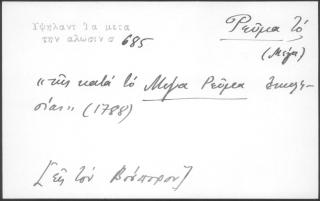 Υψηλαντ Τα μετα
την αλωσιν σ 685
Ρεῦμα τό
(Μέγα)
«τῆς κατά τό Μέγα Ρεῦμα ἐκκλη-
σίας» (1788)
[εἰς τόν Βόσπορον]